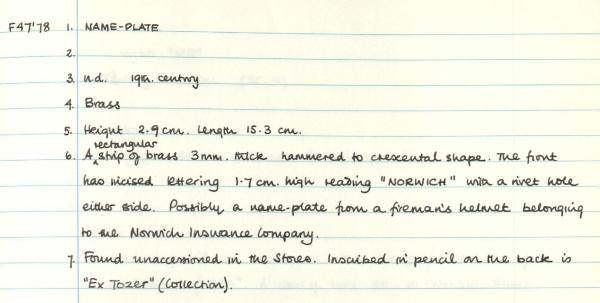 F47'78 1. NAME-PLATE
2.
3. n.d. 19th. century
4. Brass
5. Height 2.9cm. Length 15.3 cm.
6. A rectangular strip of brass 3mm. thick hammered to crescental shape. The front
has incised lettering 1.7cm. high reading "NORWICH" with a rivet hole
either side. Possibly a name-plate from a fireman's helmet belonging
to the Norwich Insurance Company.
7. Found unaccessioned in the Stores. Inscribed in pencil on the back is
"Ex Tozer" (Collection).